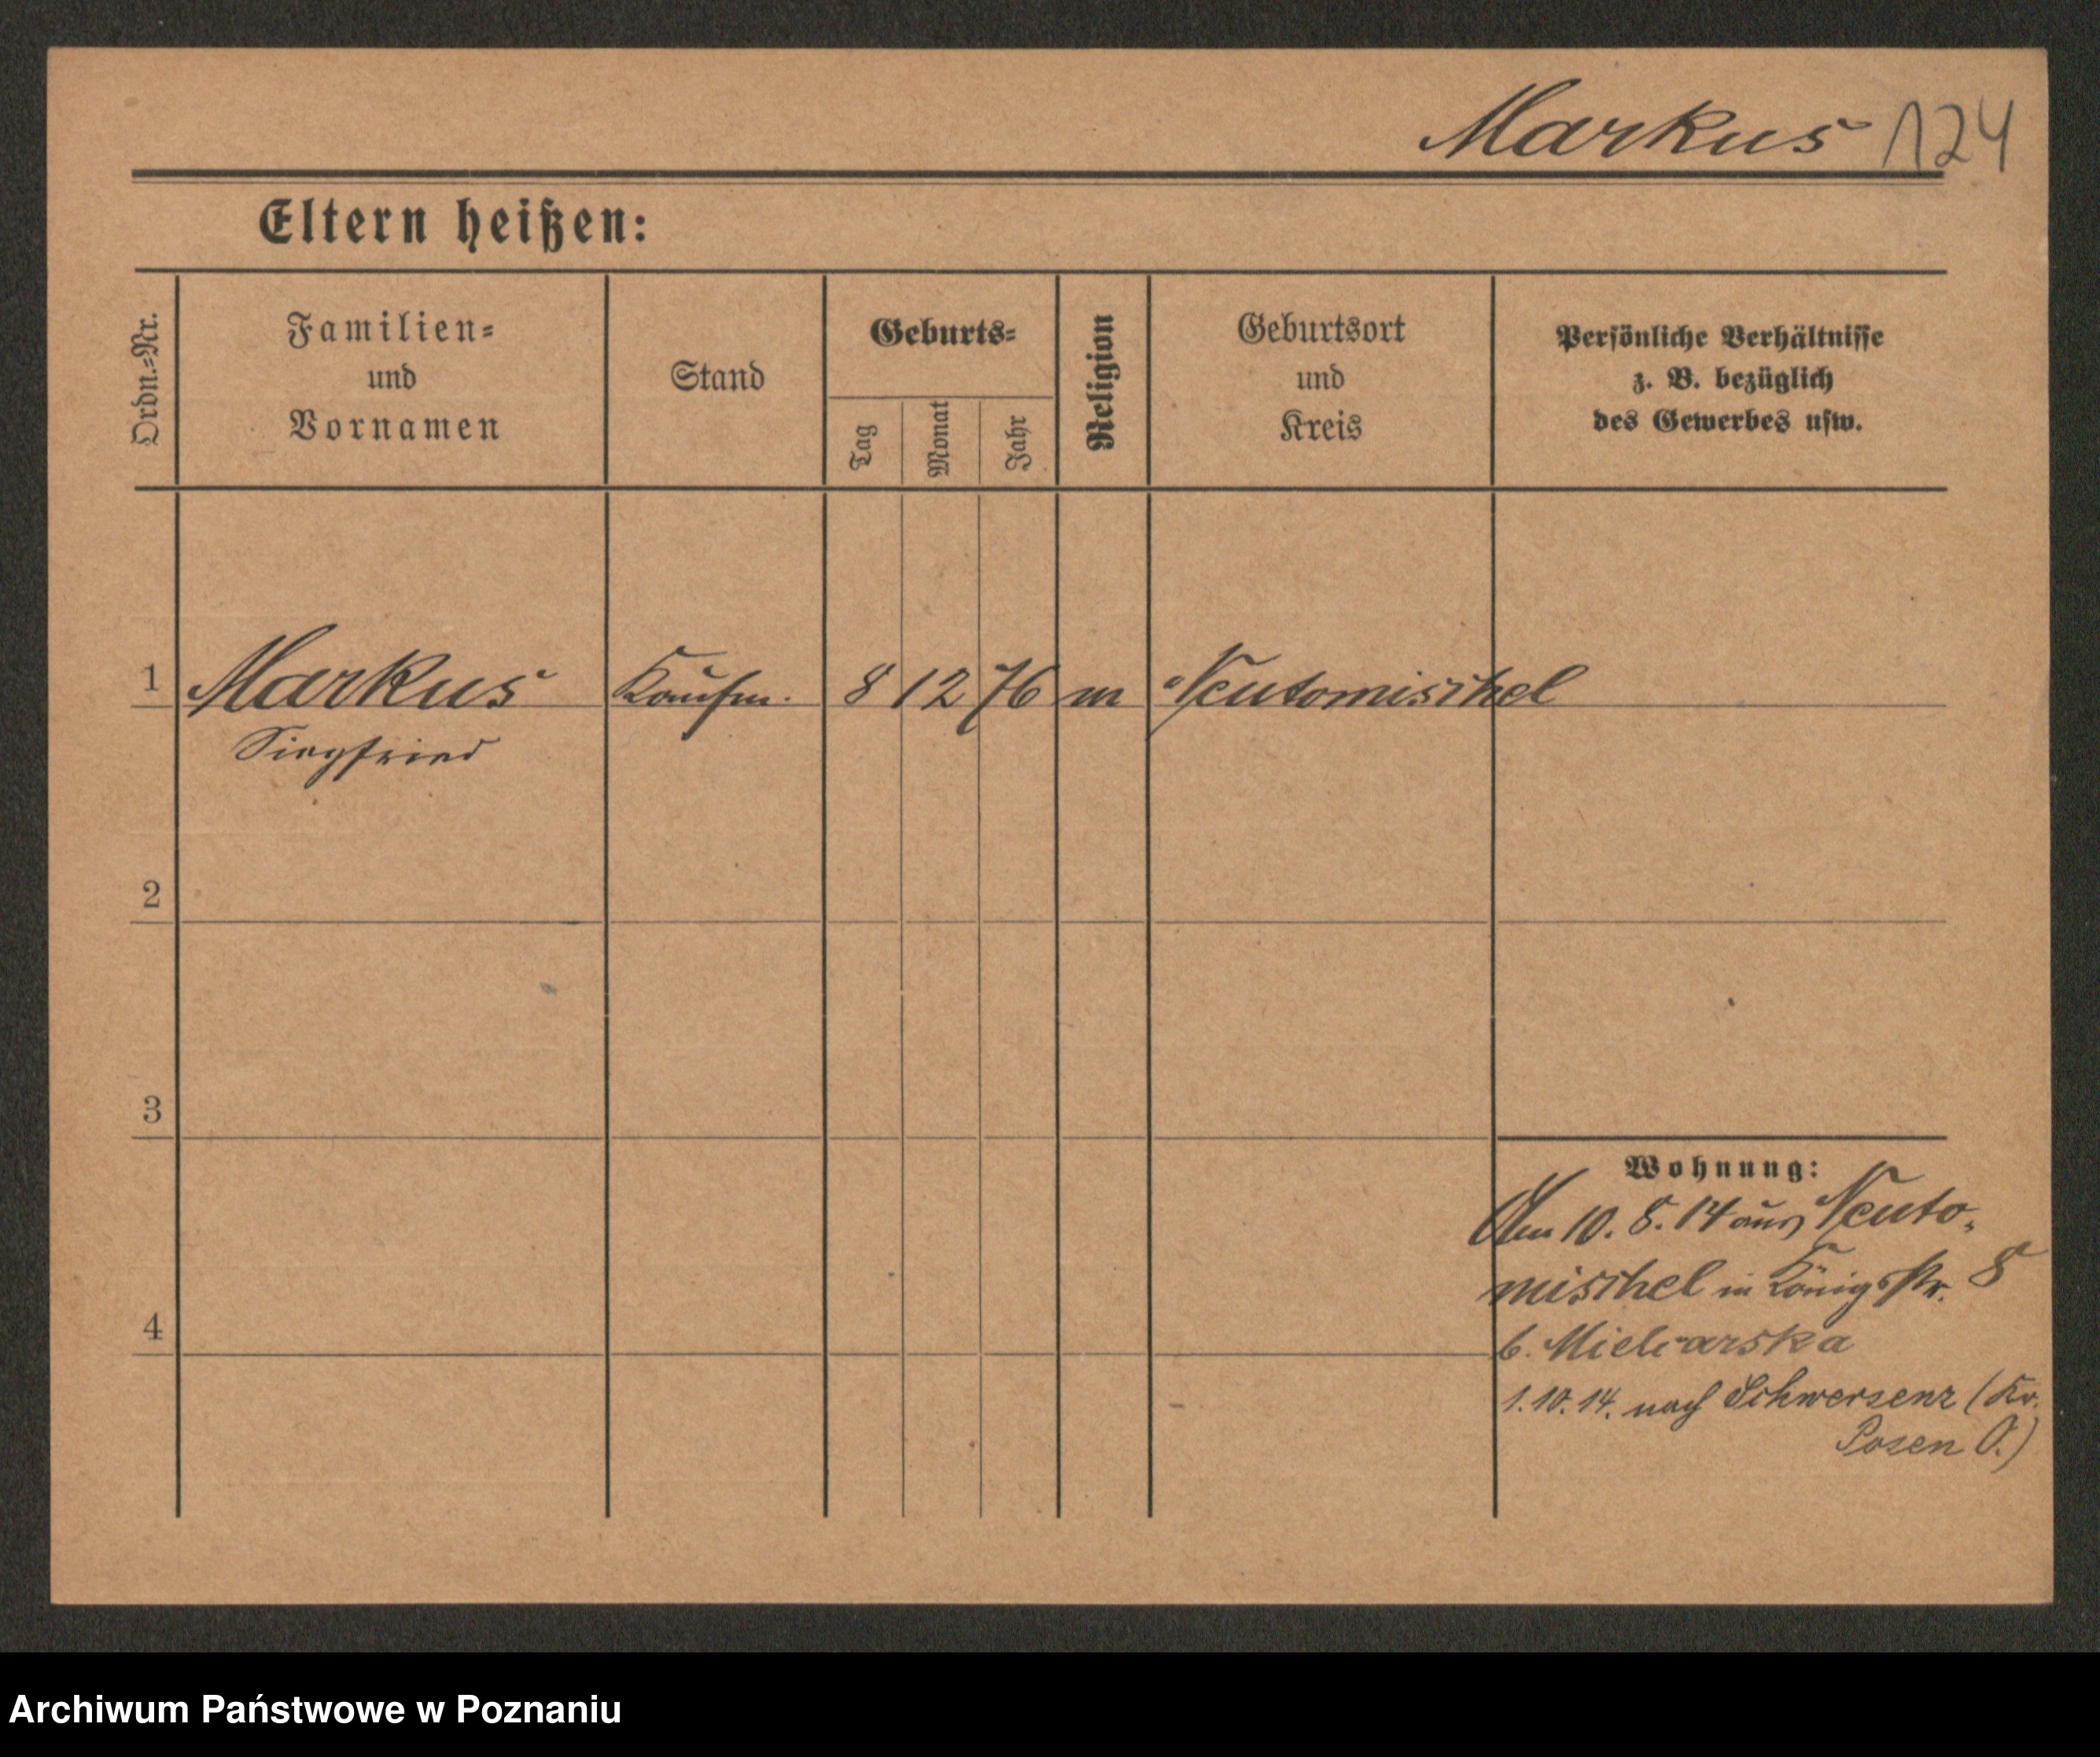 Markus 124
Eltern heißen:
Ordn.=Nr.
Familien=
und
Vornamen
Stand
Geburts=
Tag
Monat
Jahr
Religion
Geburtsort
und
Kreis
Persönliche Verhältnisse
z. B. bezüglich
des Gewerbes usw.
1 Markus Kaufm. 8 12 76 m Neutomischel
Siegfried
2
3
4
Wohnung:
Am 10. 8. 14 aus Neuto-
mischel in Königsstr. 8
b.
1.10.14. nach Schwersenz (Kr.
Posen O.)
Archiwum Państwowe w Poznaniu